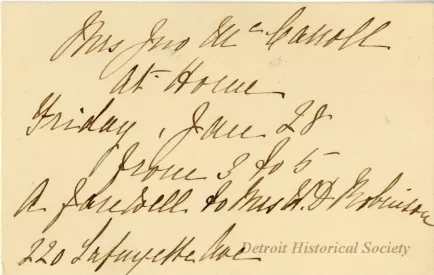 Mrs Jno McCarroll
At Home
Friday, Jan 28
from 3 to 5
A farewell to Mrs W. D Robinson
220 Lafayette Ave
Detroit Historical Society